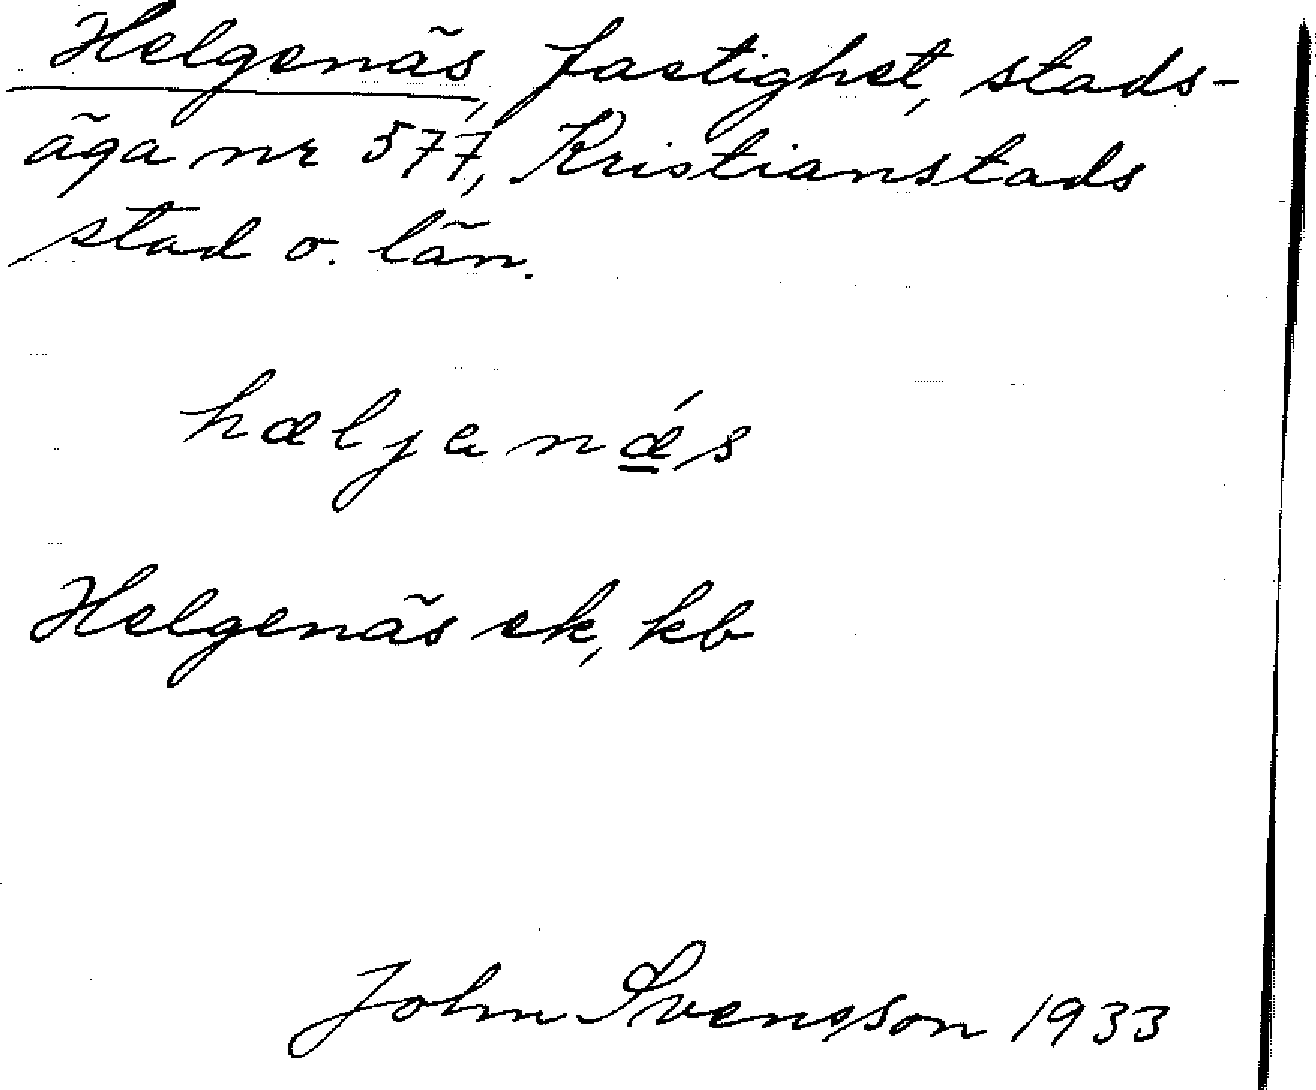 Helgenäs, fastighet, stads-
äga nr 577, Kristianstads
stad o. län.
hæljenǽs
Helgenäs ek, kb
John Svensson 1933